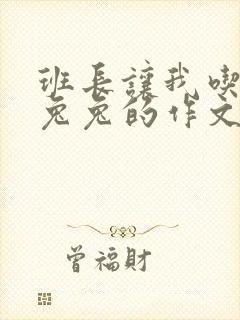 班长讓我喫
兔兔的作文
曾福財